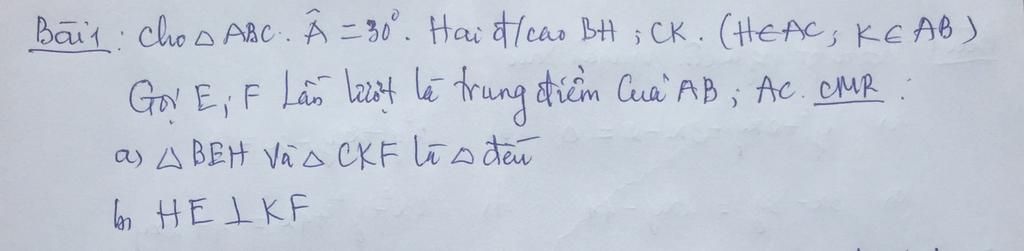 Bài 1: Cho △ ABC. Â = 30°. Hai đ/cao BH ; CK. (H∈AC; K∈AB)
Gọi E; F lần lượt là trung điểm của AB; AC. CMR:
a) △ BEH và △ CKF là △ đều
b) HE ⊥ KF